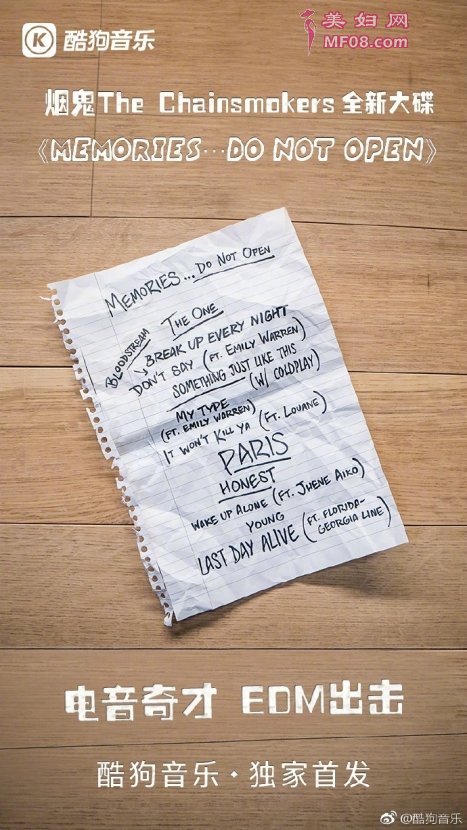 酷狗音乐
美妇网
MF08.com
烟鬼The Chainsmokers 全新大碟
《MEMORIES...DO NOT OPEN》
MEMORIES...DO NOT OPEN
THE ONE
BLOODSTREAM
BREAK UP EVERY NIGHT
DON'T SAY (FT. EMILY WARREN)
SOMETHING JUST LIKE THIS
(W/ COLDPLAY)
MY TYPE
(FT. EMILY WARREN)
IT WON'T KILL YA (FT. LOUANE)
PARIS
HONEST
WAKE UP ALONE (FT. JHENE AIKO)
YOUNG
LAST DAY ALIVE (FT. FLORIDA-
GEORGIA LINE)
电音奇才 EDM出击
酷狗音乐·独家首发
@酷狗音乐